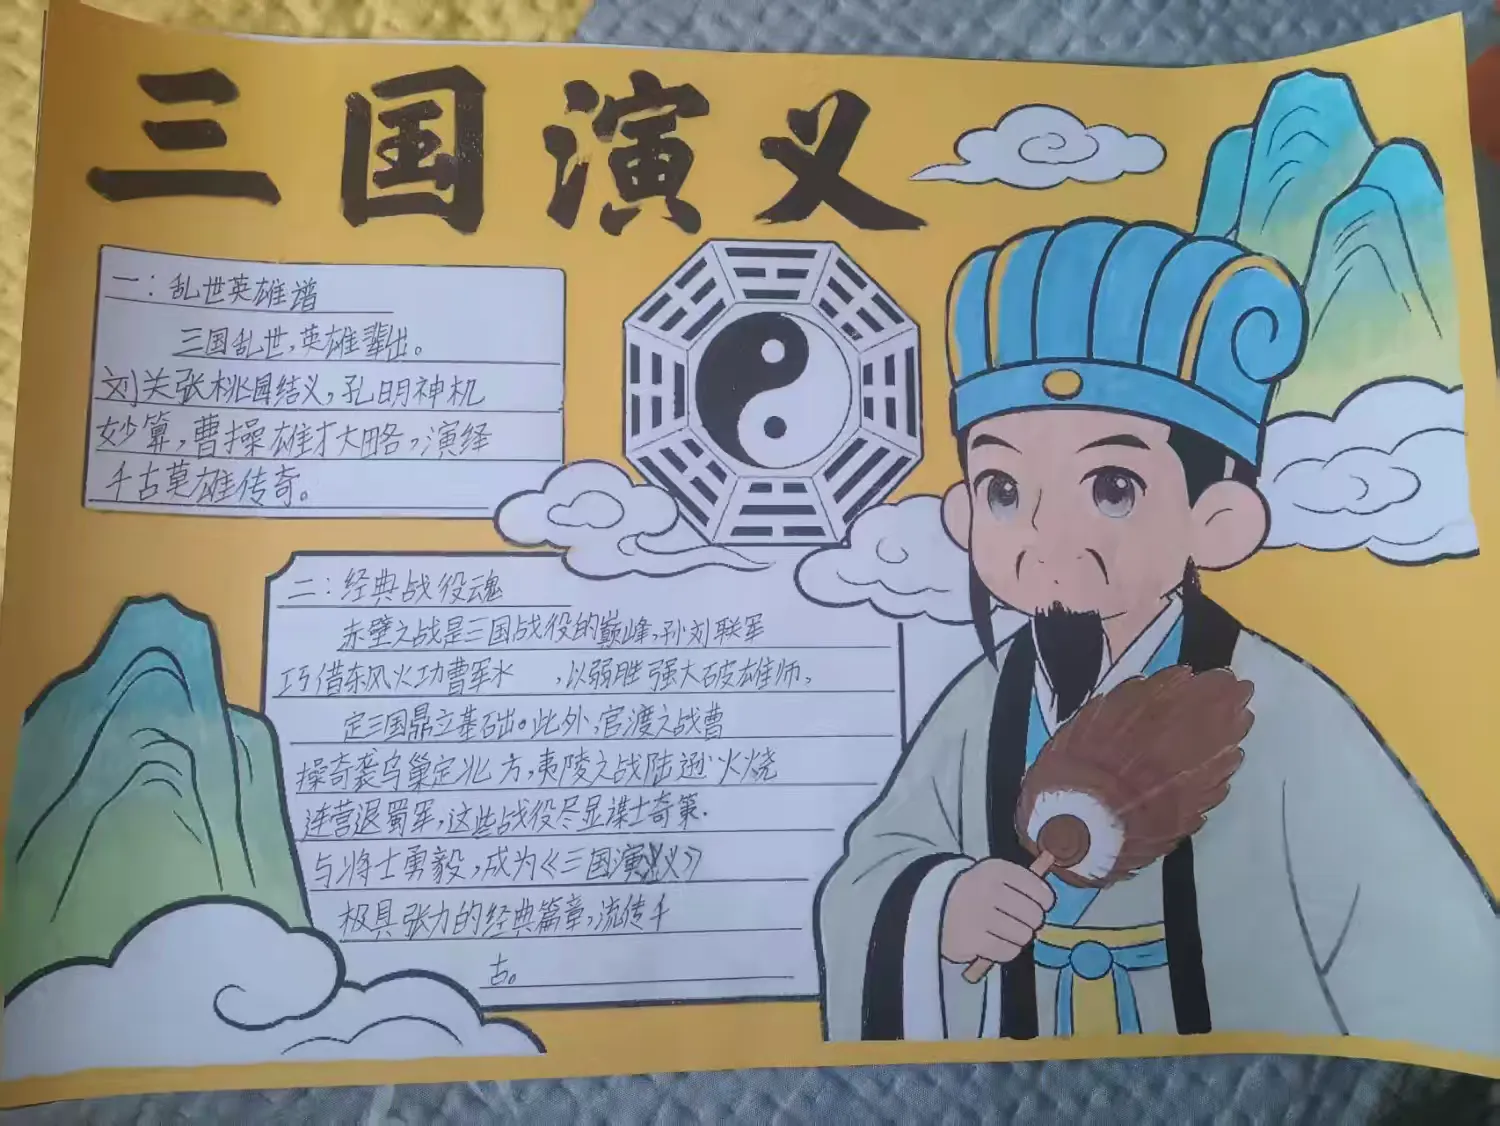 三国演义
一：乱世英雄谱
三国乱世，英雄辈出。
刘关张桃园结义，孔明神机
妙算，曹操雄才大略，演绎
千古英雄传奇。
二：经典战役魂
赤壁之战是三国战役的巅峰，孙刘联军
巧借东风火功曹军水　，以弱胜强大破雄师，
定三国鼎立基础。此外，官渡之战曹
操奇袭乌巢定北方，夷陵之战陆逊火烧
连营退蜀军，这些战役尽显谋士奇策.
与将士勇毅，成为《三国演义》
极具张力的经典篇章，流传千
古。